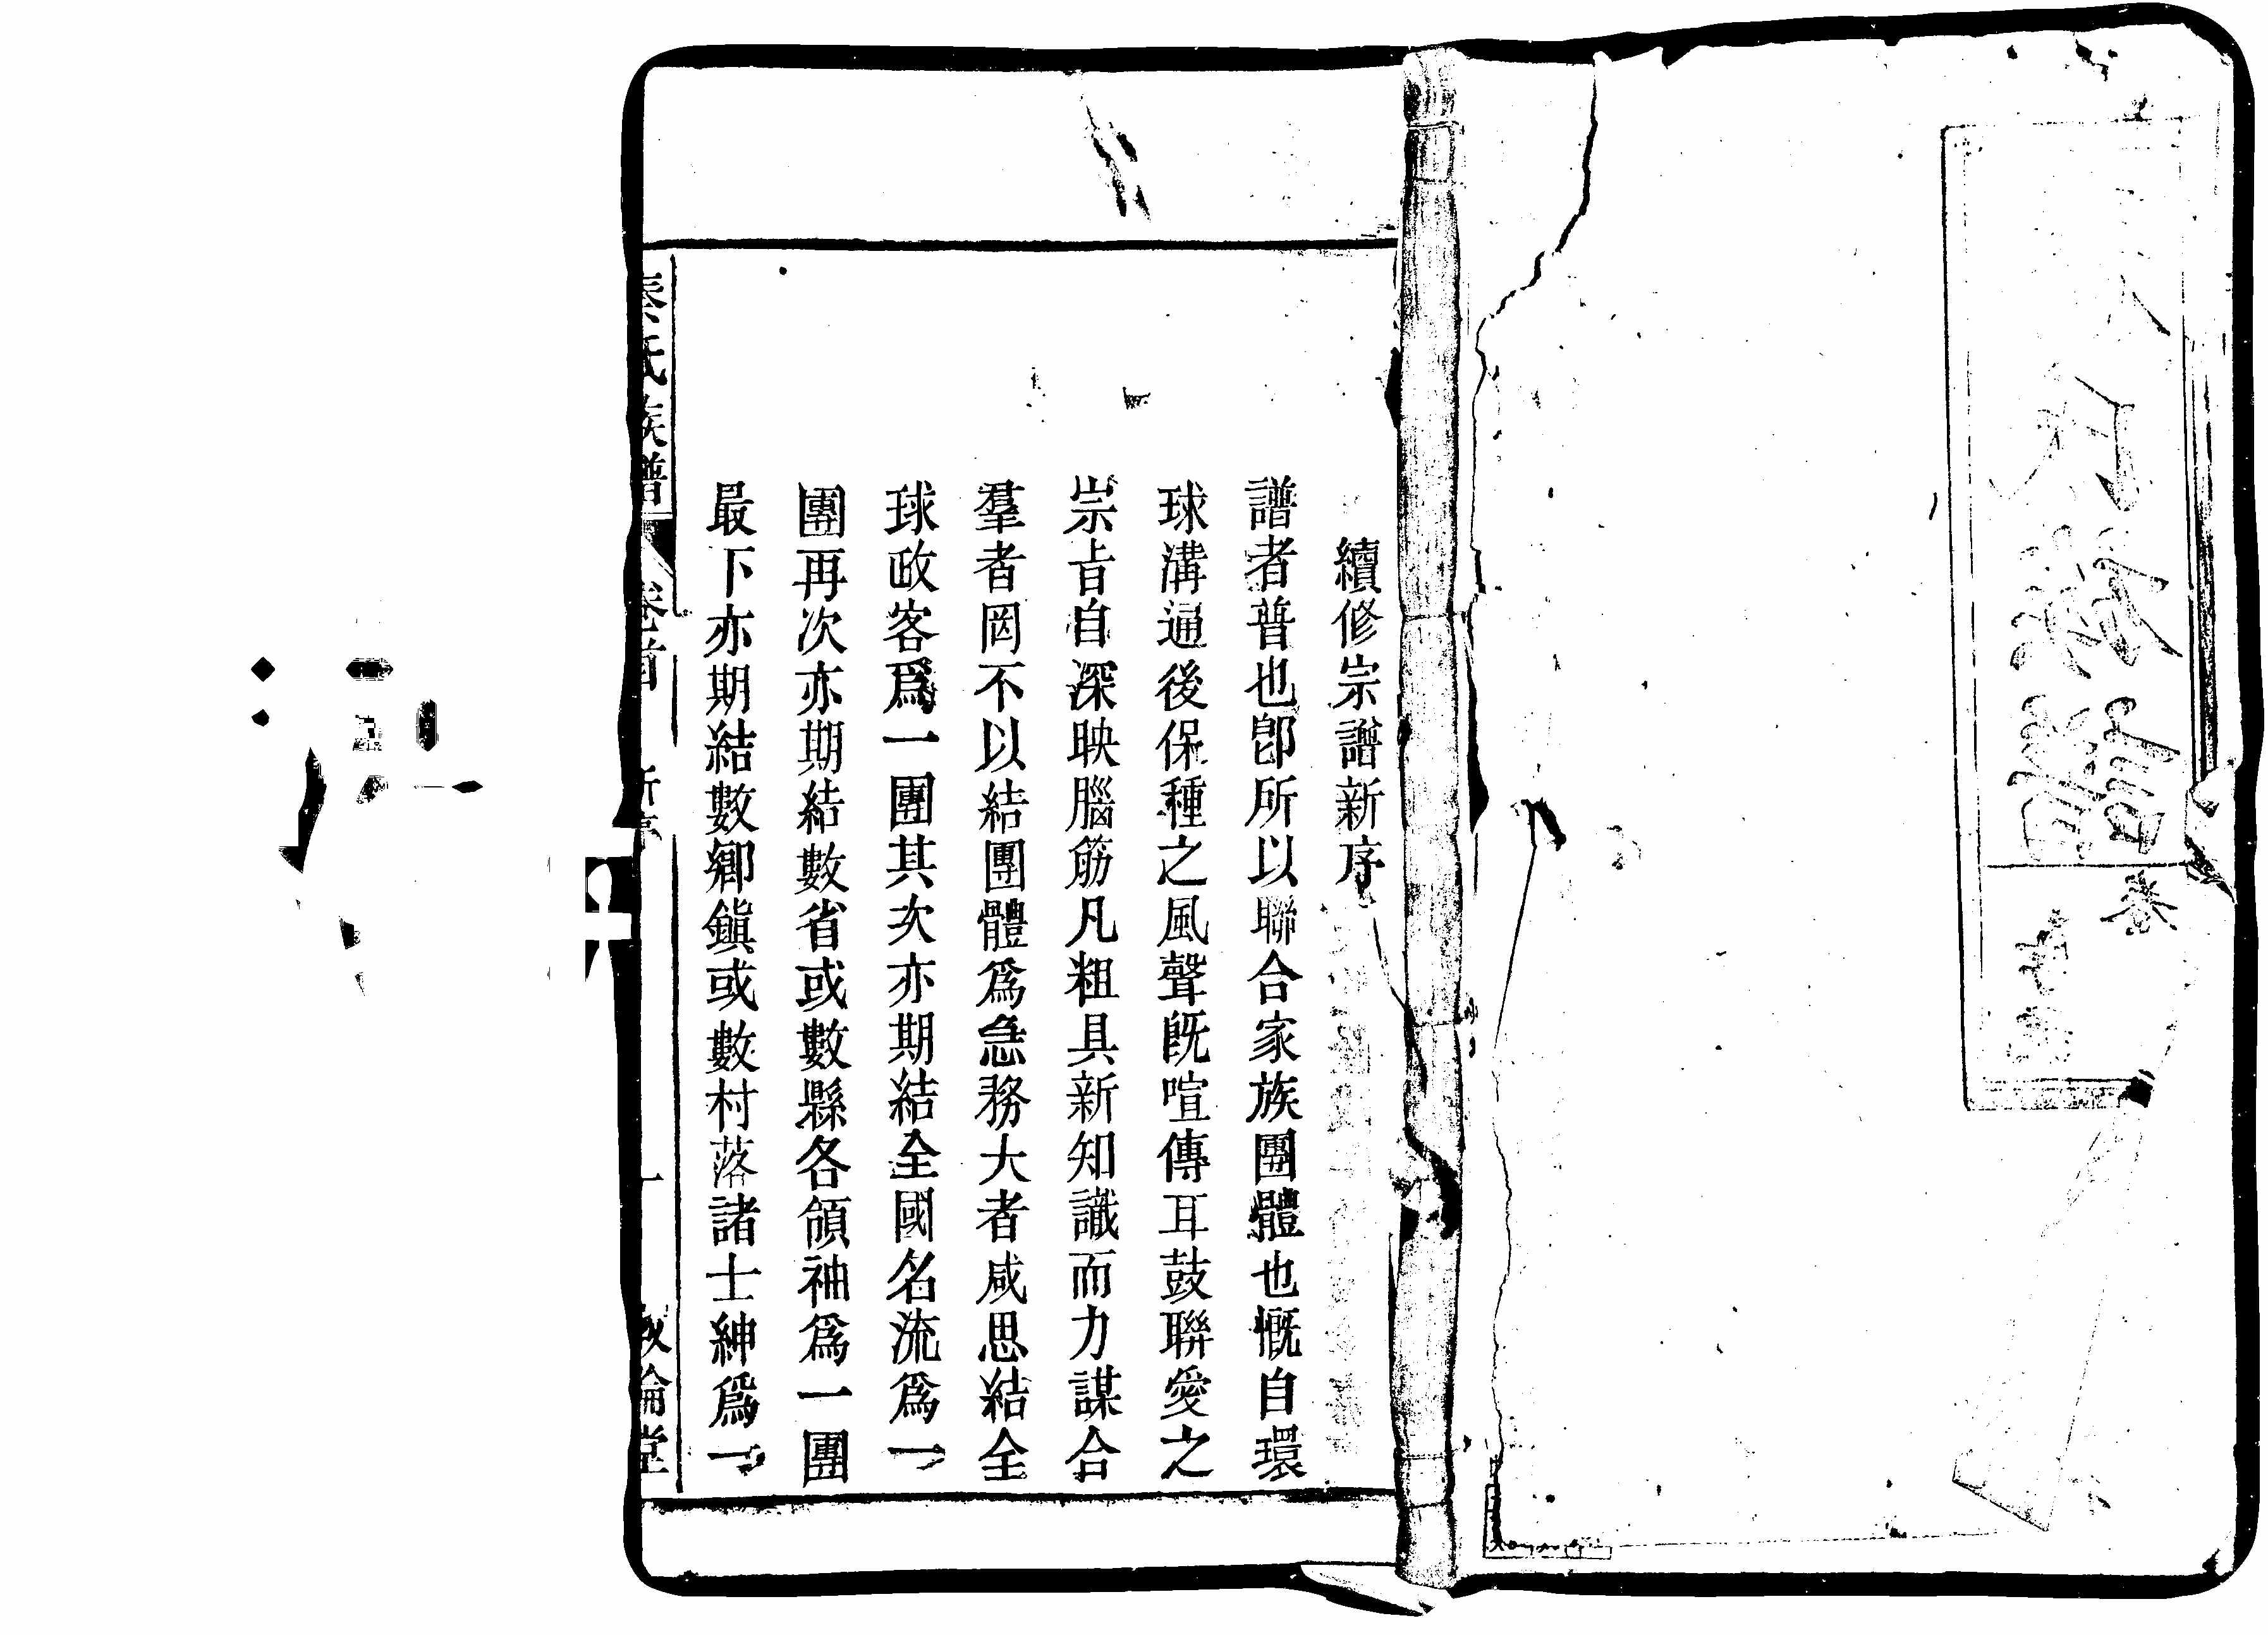 卷
續修宗譜新序
譜者普也卽所以聯合家族團體也慨自環
球溝通後保種之風聲旣喧傳耳鼓聯愛之
崇旨自深映腦筋凡粗具新知識而力謀合
羣者罔不以結團體爲急務大者咸思結全
球政客爲一團其次亦期結全國名流爲一
團再次亦期結數省或數縣各領袖爲一團
最下亦期結數鄉鎮或數村落諸士紳爲一
秦氏族譜 卷首 新序 一 敦倫堂